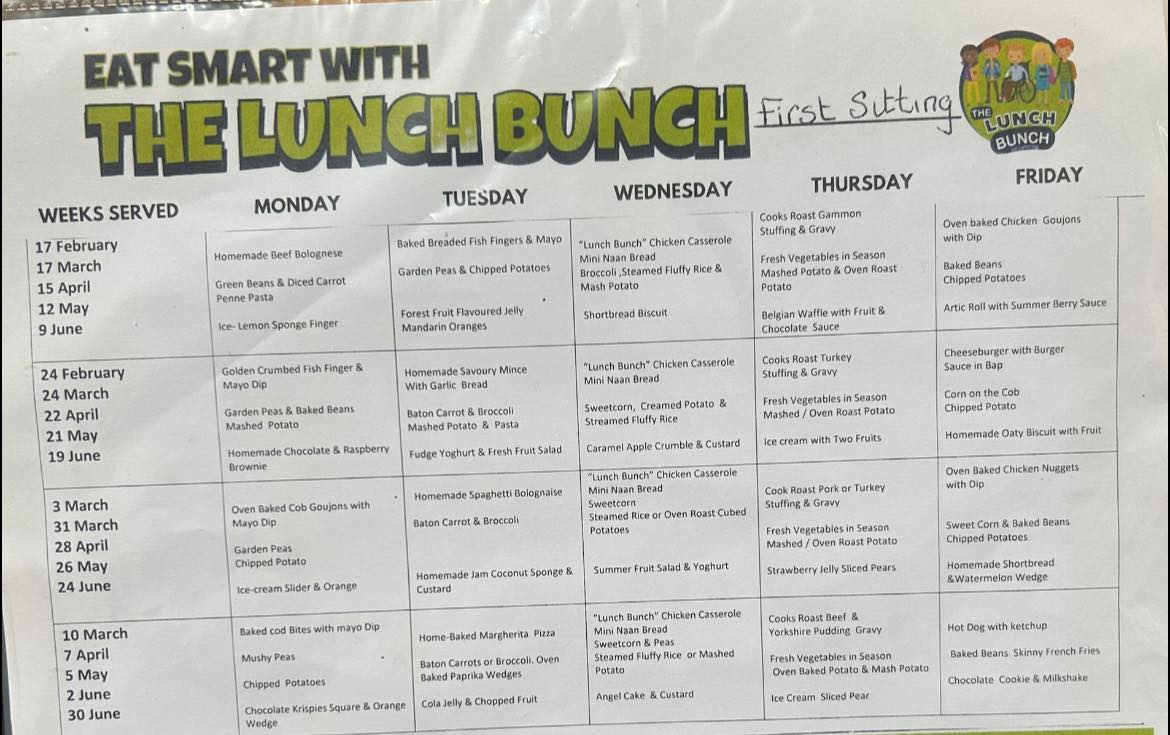 EAT SMART WITH
THE LUNCH BUNCH
First Sitting
THE
LUNCH
BUNCH
WEEKS SERVED
MONDAY
TUESDAY
WEDNESDAY
THURSDAY
FRIDAY
17 February
17 March
15 April
12 May
9 June
Homemade Beef Bolognese
Green Beans & Diced Carrot
Penne Pasta
Ice- Lemon Sponge Finger
Baked Breaded Fish Fingers & Mayo
Garden Peas & Chipped Potatoes
Forest Fruit Flavoured Jelly
Mandarin Oranges
"Lunch Bunch" Chicken Casserole
Mini Naan Bread
Broccoli ,Steamed Fluffy Rice &
Mash Potato
Shortbread Biscuit
Cooks Roast Gammon
Stuffing & Gravy
Fresh Vegetables in Season
Mashed Potato & Oven Roast
Potato
Belgian Waffle with Fruit &
Chocolate Sauce
Oven baked Chicken Goujons
with Dip
Baked Beans
Chipped Potatoes
Artic Roll with Summer Berry Sauce
24 February
24 March
22 April
21 May
19 June
Golden Crumbed Fish Finger &
Mayo Dip
Garden Peas & Baked Beans
Mashed Potato
Homemade Chocolate & Raspberry
Brownie
Homemade Savoury Mince
With Garlic Bread
Baton Carrot & Broccoli
Mashed Potato & Pasta
Fudge Yoghurt & Fresh Fruit Salad
"Lunch Bunch" Chicken Casserole
Mini Naan Bread
Sweetcorn, Creamed Potato &
Streamed Fluffy Rice
Caramel Apple Crumble & Custard
Cooks Roast Turkey
Stuffing & Gravy
Fresh Vegetables in Season
Mashed / Oven Roast Potato
Ice cream with Two Fruits
Cheeseburger with Burger
Sauce in Bap
Corn on the Cob
Chipped Potato
Homemade Oaty Biscuit with Fruit
3 March
31 March
28 April
26 May
24 June
Oven Baked Cob Goujons with
Mayo Dip
Garden Peas
Chipped Potato
Ice-cream Slider & Orange
Homemade Spaghetti Bolognaise
Baton Carrot & Broccoli
Homemade Jam Coconut Sponge &
Custard
"Lunch Bunch" Chicken Casserole
Mini Naan Bread
Sweetcorn
Steamed Rice or Oven Roast Cubed
Potatoes
Summer Fruit Salad & Yoghurt
Cook Roast Pork or Turkey
Stuffing & Gravy
Fresh Vegetables in Season
Mashed / Oven Roast Potato
Strawberry Jelly Sliced Pears
Oven Baked Chicken Nuggets
with Dip
Sweet Corn & Baked Beans
Chipped Potatoes
Homemade Shortbread
&Watermelon Wedge
10 March
7 April
5 May
2 June
30 June
Baked cod Bites with mayo Dip
Mushy Peas
Chipped Potatoes
Chocolate Krispies Square & Orange
Wedge
Home-Baked Margherita Pizza
Baton Carrots or Broccoli. Oven
Baked Paprika Wedges
Cola Jelly & Chopped Fruit
"Lunch Bunch" Chicken Casserole
Mini Naan Bread
Sweetcorn & Peas
Steamed Fluffy Rice or Mashed
Potato
Angel Cake & Custard
Cooks Roast Beef &
Yorkshire Pudding Gravy
Fresh Vegetables in Season
Oven Baked Potato & Mash Potato
Ice Cream Sliced Pear
Hot Dog with ketchup
Baked Beans Skinny French Fries
Chocolate Cookie & Milkshake